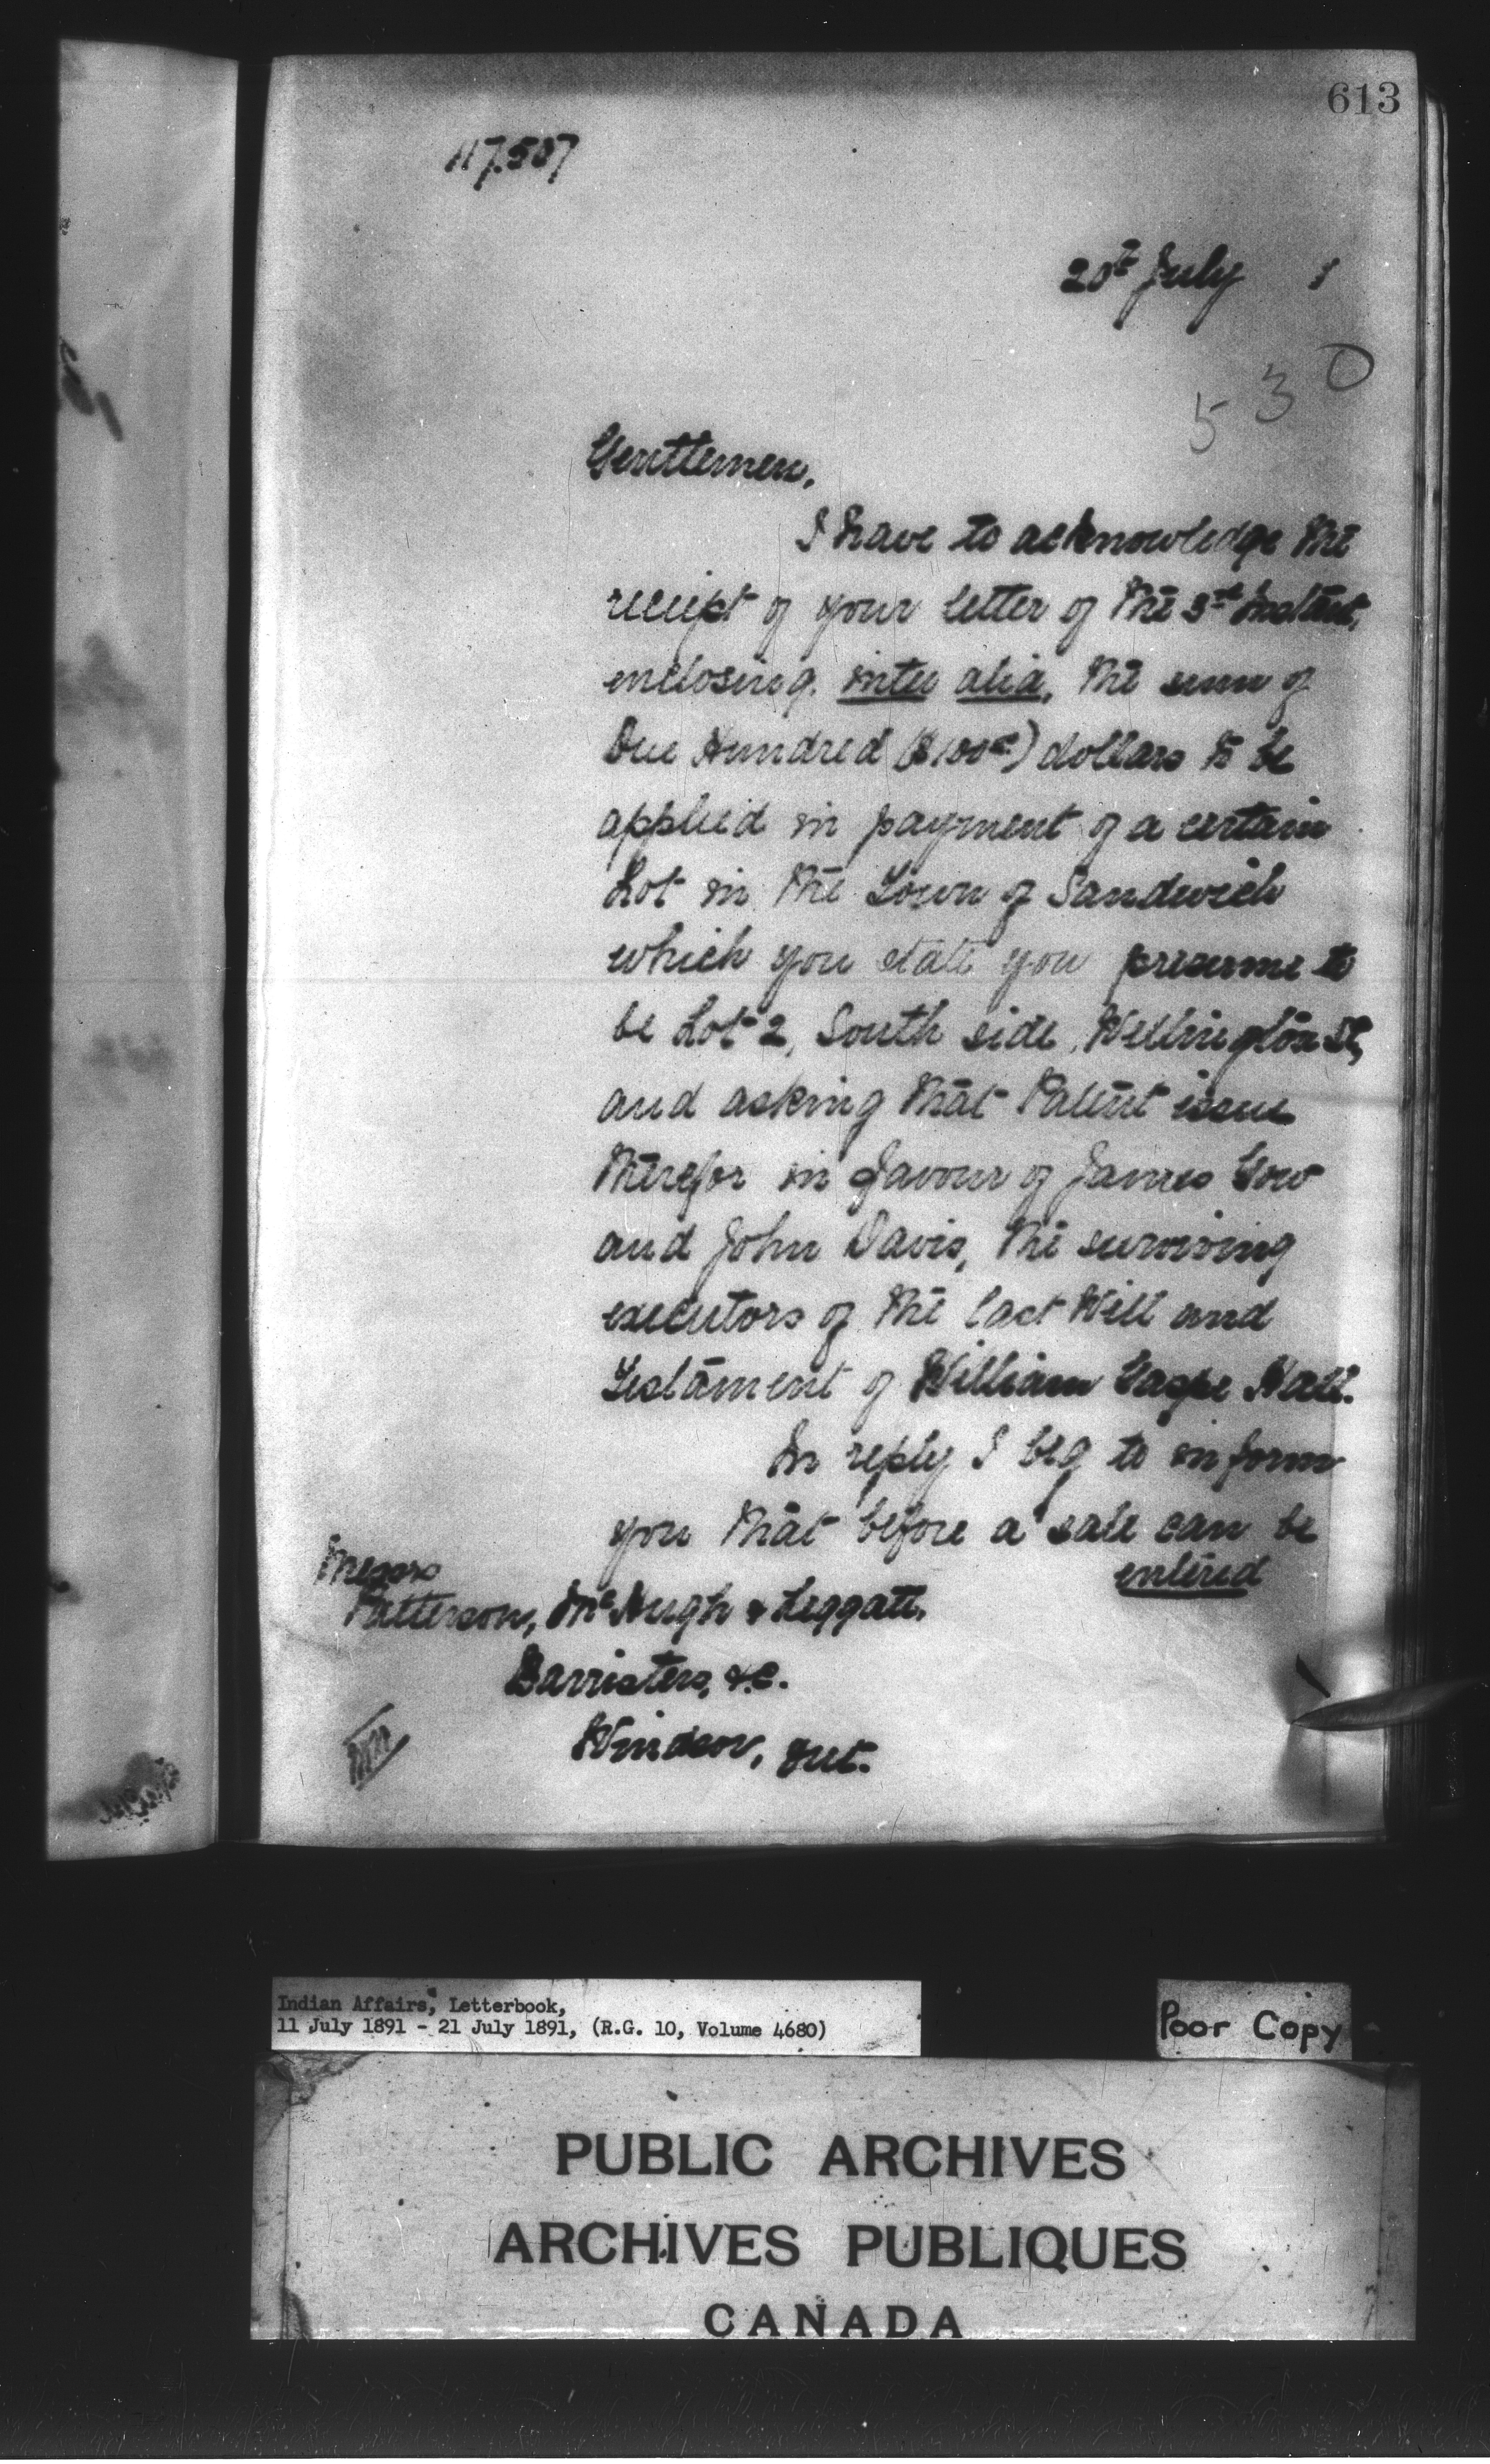 613
117.507
20th July 1
530
Gentlemen,
I have to acknowledge the
receipt of your letter of the 3rd Instant,
enclosing, inter alia, the sum of
One Hundred ($100⁰⁰) dollars to be
applied in payment of a certain
Lot in the Town of Sandwich
which you state you presume to
be Lot 2, South side, Wellington St,
and asking that Patent issue
therefor in favour of James Gow
and John Davis, the surviving
executors of the last Will and
Testament of William Gaspe Hall.
In reply I beg to inform
you that before a sale can be
entered
Messrs
Patterson, McHugh & Leggatt,
Barristers, &c.
Windsor, Ont.
Indian Affairs, Letterbook,
11 July 1891 - 21 July 1891, (R.G. 10, Volume 4680)
Poor Copy
PUBLIC ARCHIVES
ARCHIVES PUBLIQUES
CANADA